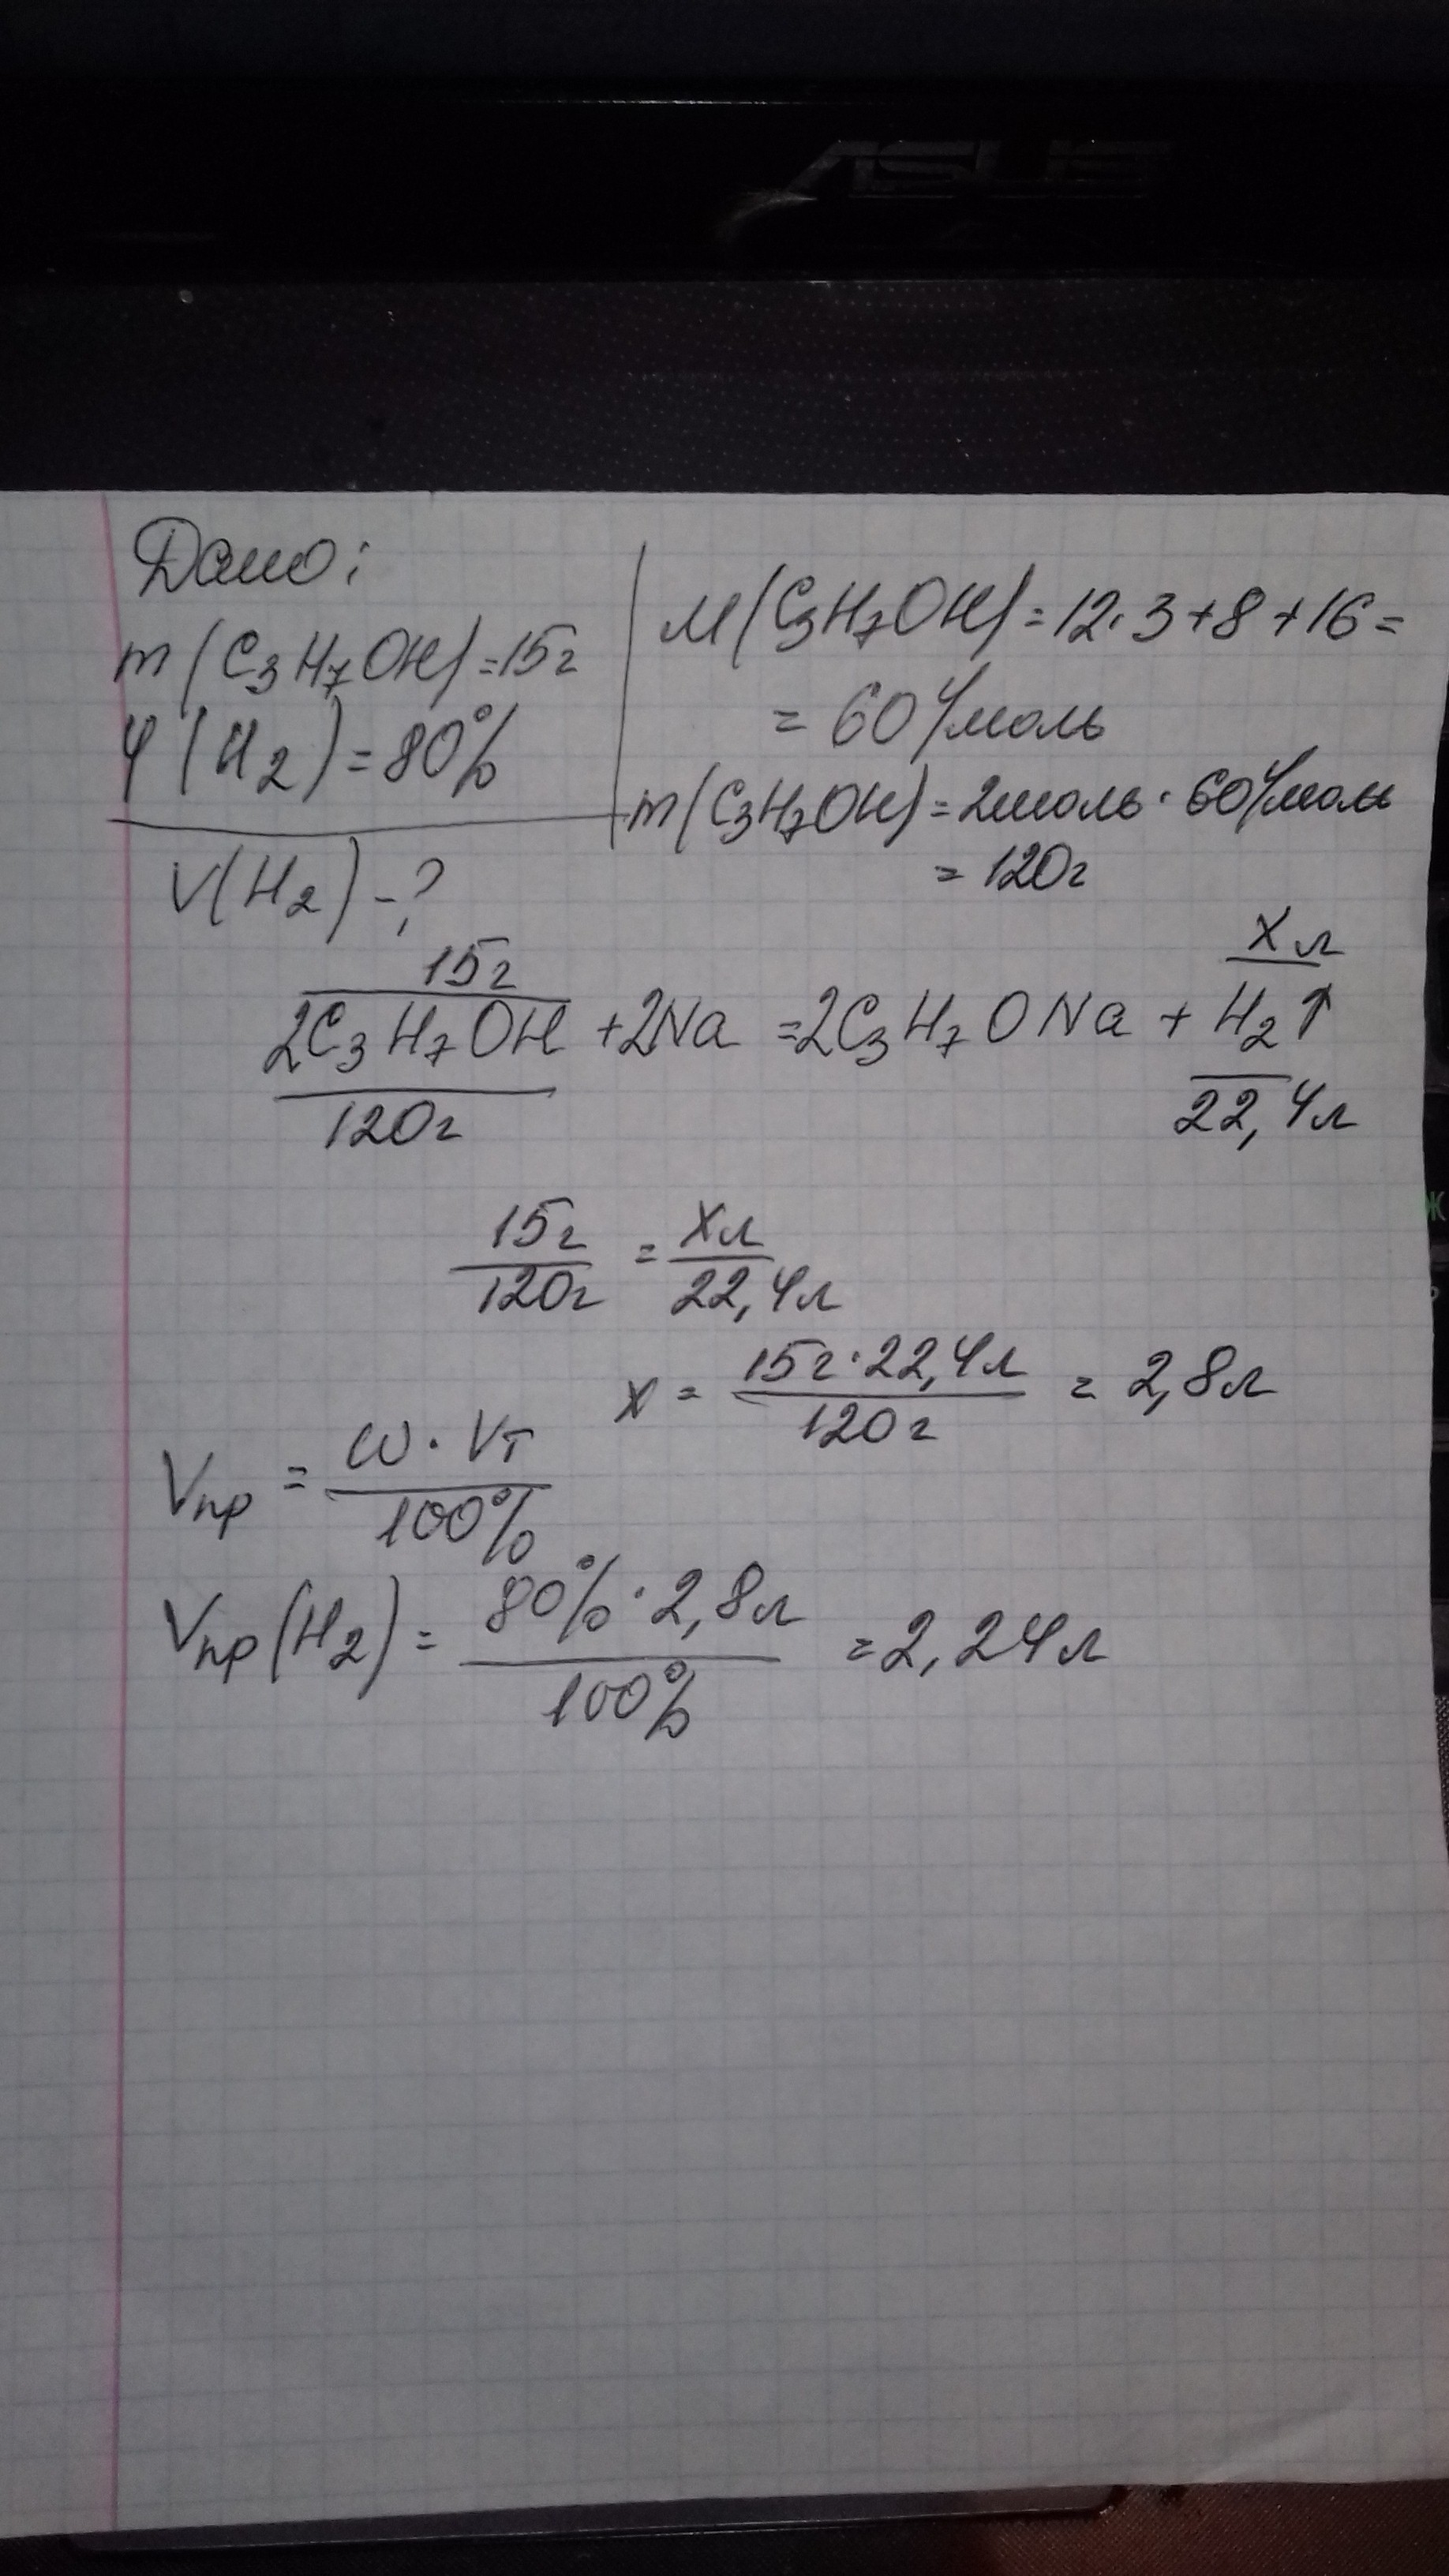 ASUS
Дано:
m(C₃H₇OH)=15г
φ(H₂)=80%
V(H₂)-?
M(C₃H₇OH)=12·3+8+16=
=60г/моль
m(C₃H₇OH)=2моль·60г/моль
=120г
15г
X л
2C₃H₇OH+2Na=2C₃H₇ONa+H₂↑
120г
22,4л
15г/120г=Xл/22,4л
x=15г·22,4л/120г=2,8л
Vпр=W·Vт/100%
Vпр(H₂)=80%·2,8л/100%=2,24л